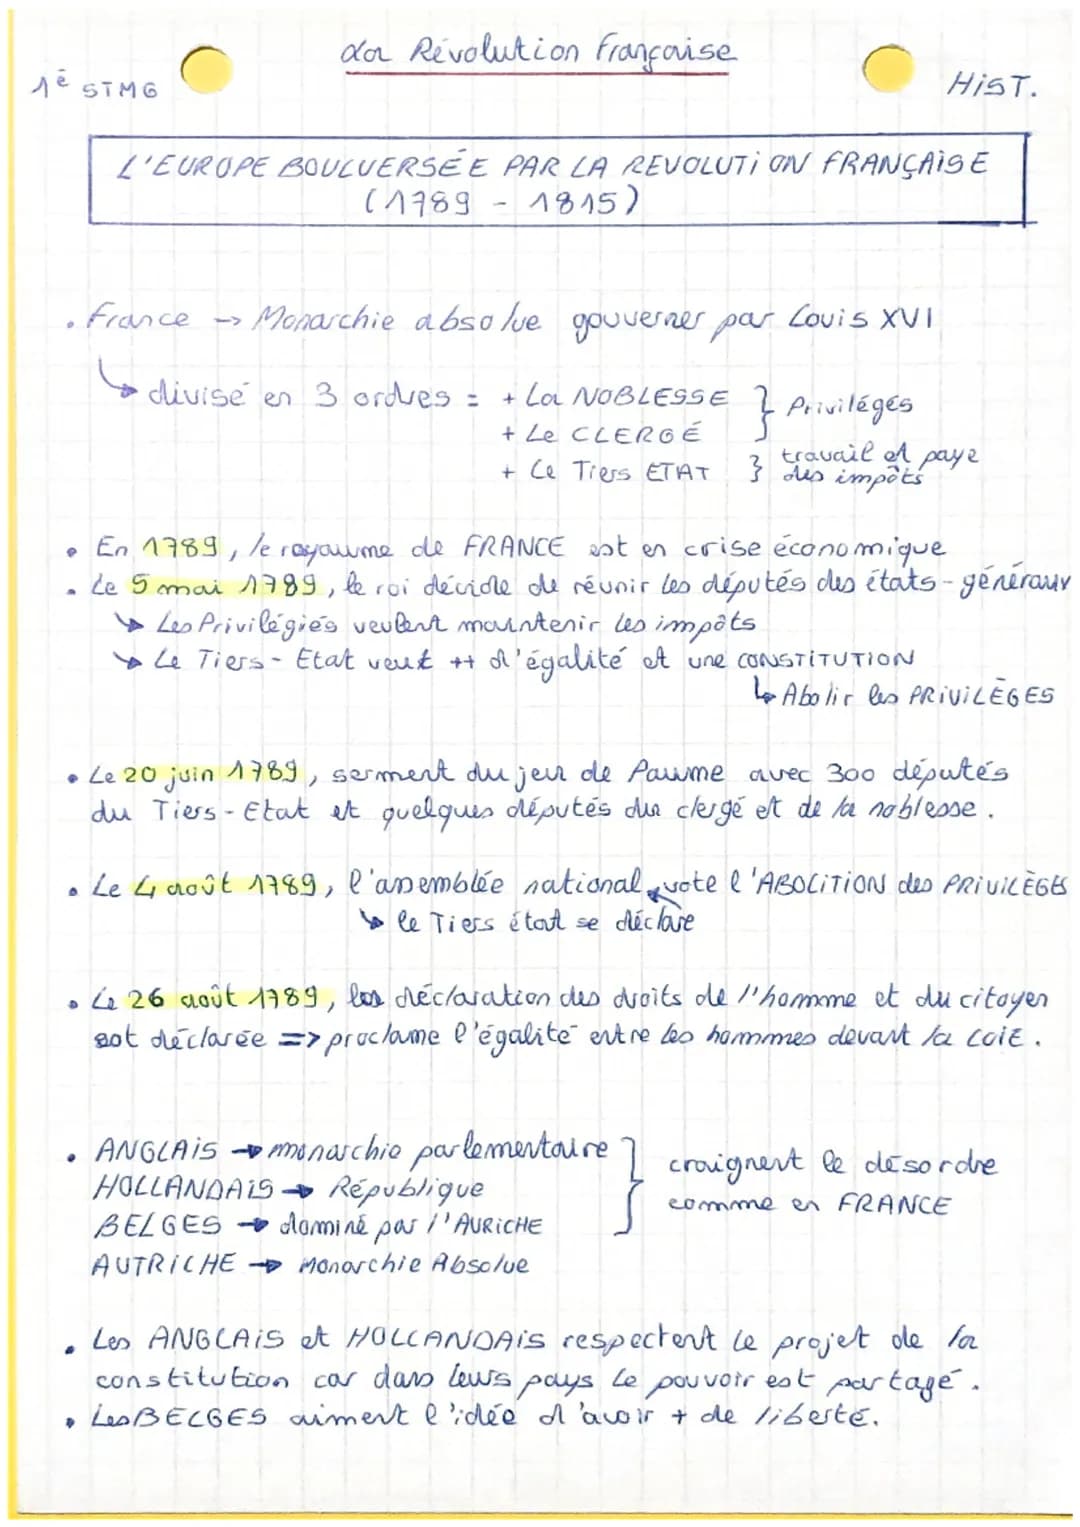 La Révolution Française
1è STMG
HIST.
L'EUROPE BOULVERSÉE PAR LA REVOLUTION FRANÇAISE
(1789 - 1815)
• France → Monarchie absolue gouverner par Louis XVI
↳ divisé en 3 ordres = + La NOBLESSE } Priviléges
+ Le CLERGÉ
+ Le Tiers ETAT } travail et paye
des impôts
• En 1789, le royaume de FRANCE est en crise économique
• Le 5 mai 1789, le roi décide de réunir les députés des états-généraux
↳ Les Privilégiés veulent maintenir les impôts
↳ Le Tiers-Etat veut ++ d'égalité et une CONSTITUTION
↳ Abolir les PRIVILÈGES
• Le 20 juin 1789, serment du jeu de Paume avec 300 députés
du Tiers-Etat et quelques députés du clergé et de la noblesse.
• Le 4 août 1789, l'assemblée national vote l'ABOLITION des PRIVILÈGES
↳ le Tiers état se déclare
• Le 26 août 1789, la déclaration des droits de l'homme et du citoyen
est déclarée => proclame l'égalité entre les hommes devant la LOIE.
• ANGLAIS → monarchie parlementaire } craignent le désordre
HOLLANDAIS → République
comme en FRANCE
BELGES → dominé par l'AURICHE
AUTRICHE → Monarchie Absolue
• Les ANGLAIS et HOLLANDAIS respectent le projet de la
constitution car dans leurs pays le pouvoir est partagé.
• Les BELGES aiment l'idée d'avoir + de liberté.